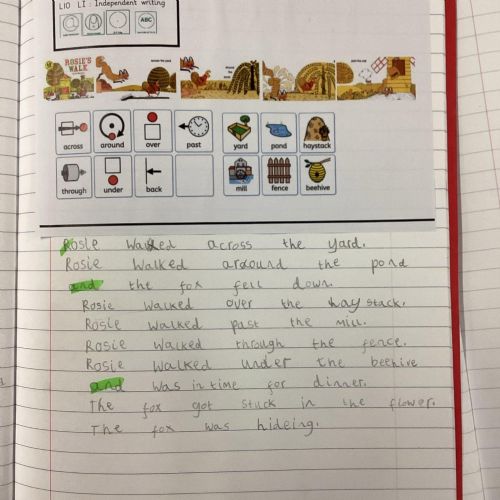 L10 LI: Independent writing
ABC
ROSIE'S WALK
across around over past yard pond haystack
through under back mill fence beehive
Rosie walked across the yard.
Rosie walked around the pond
and the fox fell down.
Rosie walked over the haystack.
Rosie walked past the mill.
Rosie walked through the fence.
Rosie walked under the beehive
and was in time for dinner.
The fox got stuck in the flower.
The fox was hideing.